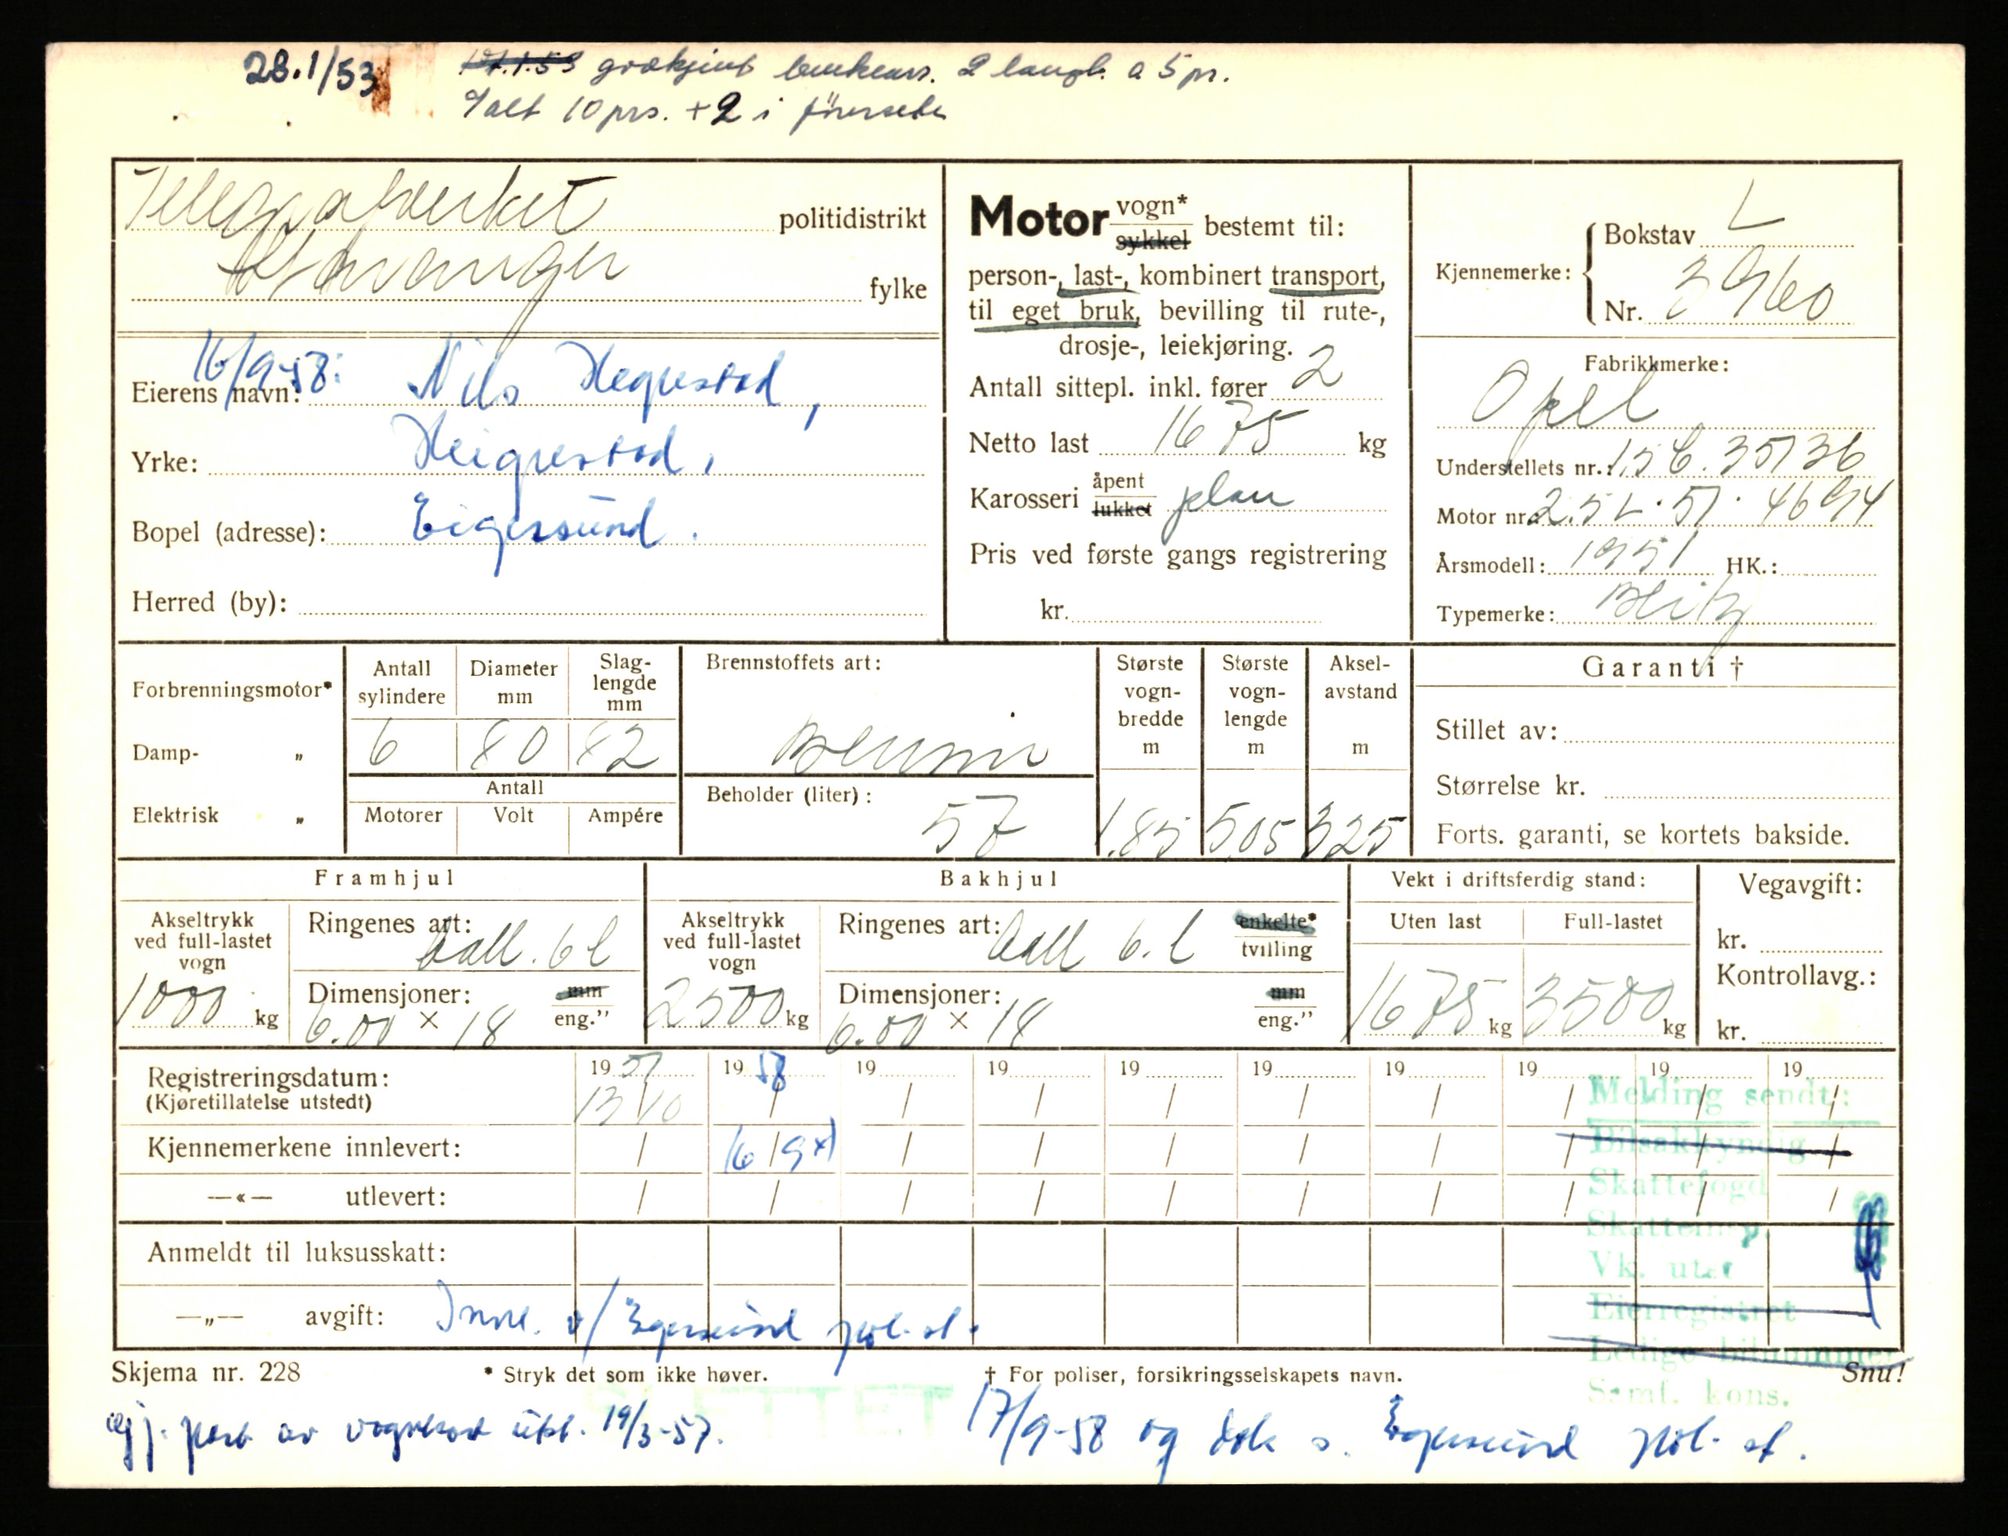 28.1/53 17.1.53 godkjent 2 a 5 pr.
Ialt 10 prs. + 2 i førersete
Telegrafverket politidistrikt
Stavanger fylke
16/9-58: Eierens navn: Nils Hegrestad,
Yrke: Heigrestad,
Bopel (adresse): Eigersund.
Herred (by):
Motor vogn* sykkel bestemt til:
person-, last-, kombinert transport,
til eget bruk, bevilling til rute-,
drosje-, leiekjøring.
Antall sittepl. inkl. fører 2
Netto last 1675 kg
Karosseri åpent lukket plan
Pris ved første gangs registrering
kr.
Kjennemerke: Bokstav L
Nr. 3960
Fabrikkmerke:
Opel
Understellets nr.: 1.5 6. 35136
Motor nr. 2.5 L. 51. 4694
Årsmodell: 1951 HK.:
Typemerke: Blitz
Forbrenningsmotor*
Damp- „
Elektrisk „
Antall sylindere 6
Diameter mm 80
Slag-lengde mm 82
Antall
Motorer Volt Ampére
Brennstoffets art:
Bensin
Beholder (liter):
57
Største vogn-bredde m 1.85
Største vogn-lengde m 5.05
Aksel-avstand m 325
Garanti †
Stillet av:
Størrelse kr.
Forts. garanti, se kortets bakside.
Framhjul
Akseltrykk ved full-lastet vogn 1000 kg
Ringenes art: ball. 6 l
Dimensjoner: 6.00 × 18 mm eng."
Bakhjul
Akseltrykk ved full-lastet vogn 2500 kg
Ringenes art: ball 6. l enkelte* tvilling
Dimensjoner: 6.00 × 18 mm eng."
Vekt i driftsferdig stand:
Uten last Full-lastet
1675 kg 3500 kg
Vegavgift:
kr.
Kontrollavg.:
kr.
Registreringsdatum: 1951 1958 19 19 19 19 19 19 19 19
(Kjøretillatelse utstedt) 13/10 / / / / / / / / /
Kjennemerkene innlevert: / 16/9 x) / / / / / / / /
—«— utlevert: / / / / / / / / / /
Anmeldt til luksusskatt:
—„— avgift: Innl. v/ Egersund pol. st.
Melding sendt:
Bilsakkyndig
Skattefogd
Skatteinsp.
Vk. utst
Eierregistret
Ledige bilnummer
Samf. kons.
Skjema nr. 228 * Stryk det som ikke høver. † For poliser, forsikringsselskapets navn. Snu!
SLETTET
Gj. part av vognkort utst. 19/3-57. 17/9-58 og dok s. Egersund pol. st.